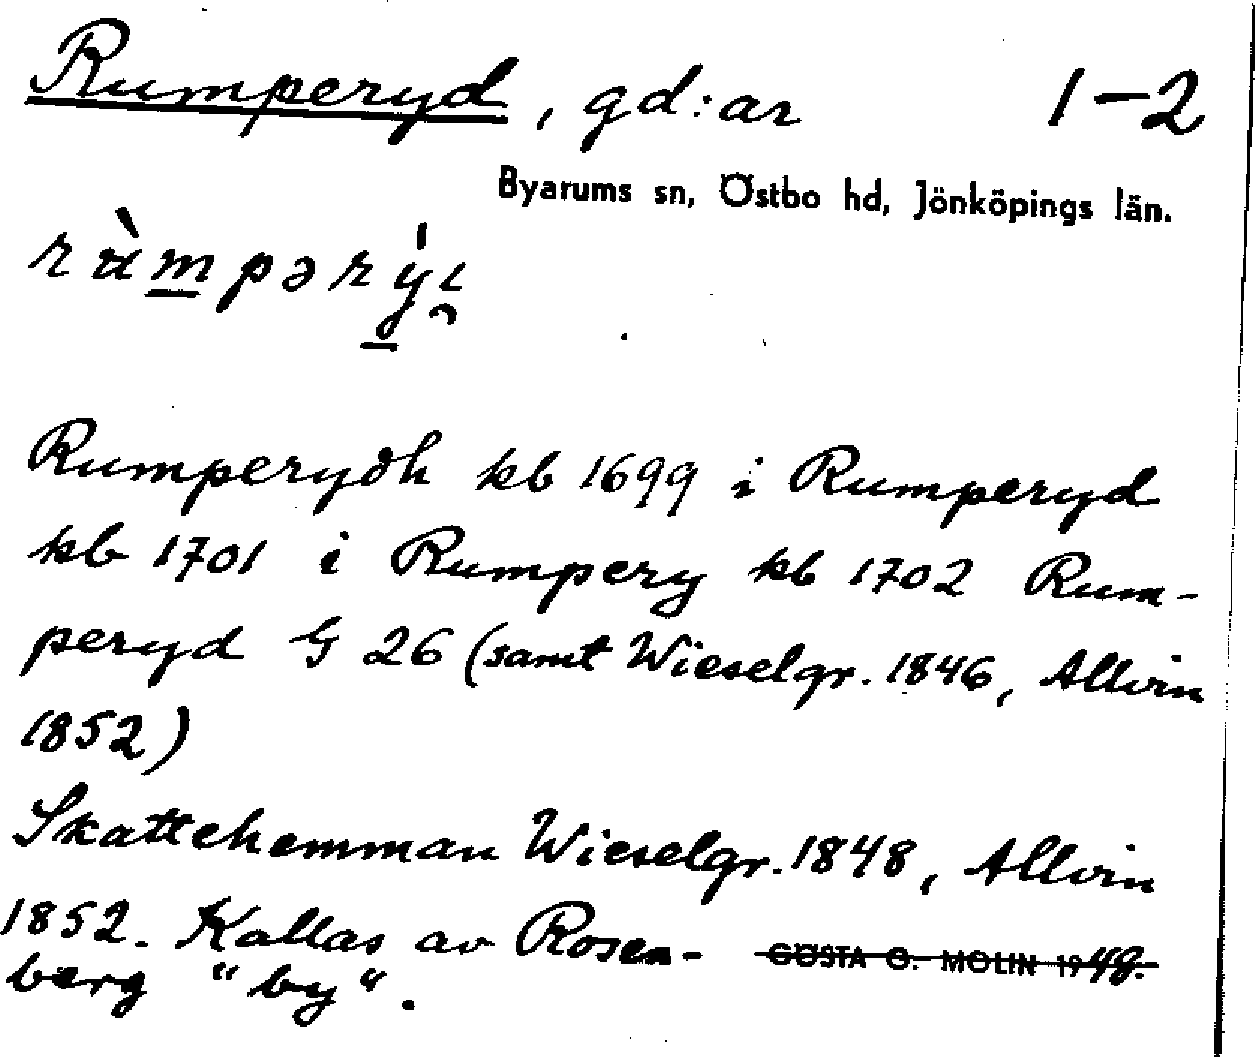 Rumperyd, gd:ar 1-2
Byarums sn, Östbo hd, Jönköpings län.
Rumperydh kb 1699 i Rumperyd
kb 1701 i Rumpery kb 1702 Rum-
peryd G 26 (samt Wieselgr. 1846, Allvin
1852)
Skattehemman Wieselgr. 1848, Allvin
1852. Kallas av Rosen-
berg "by".
GÖSTA O. MOLIN 1948.